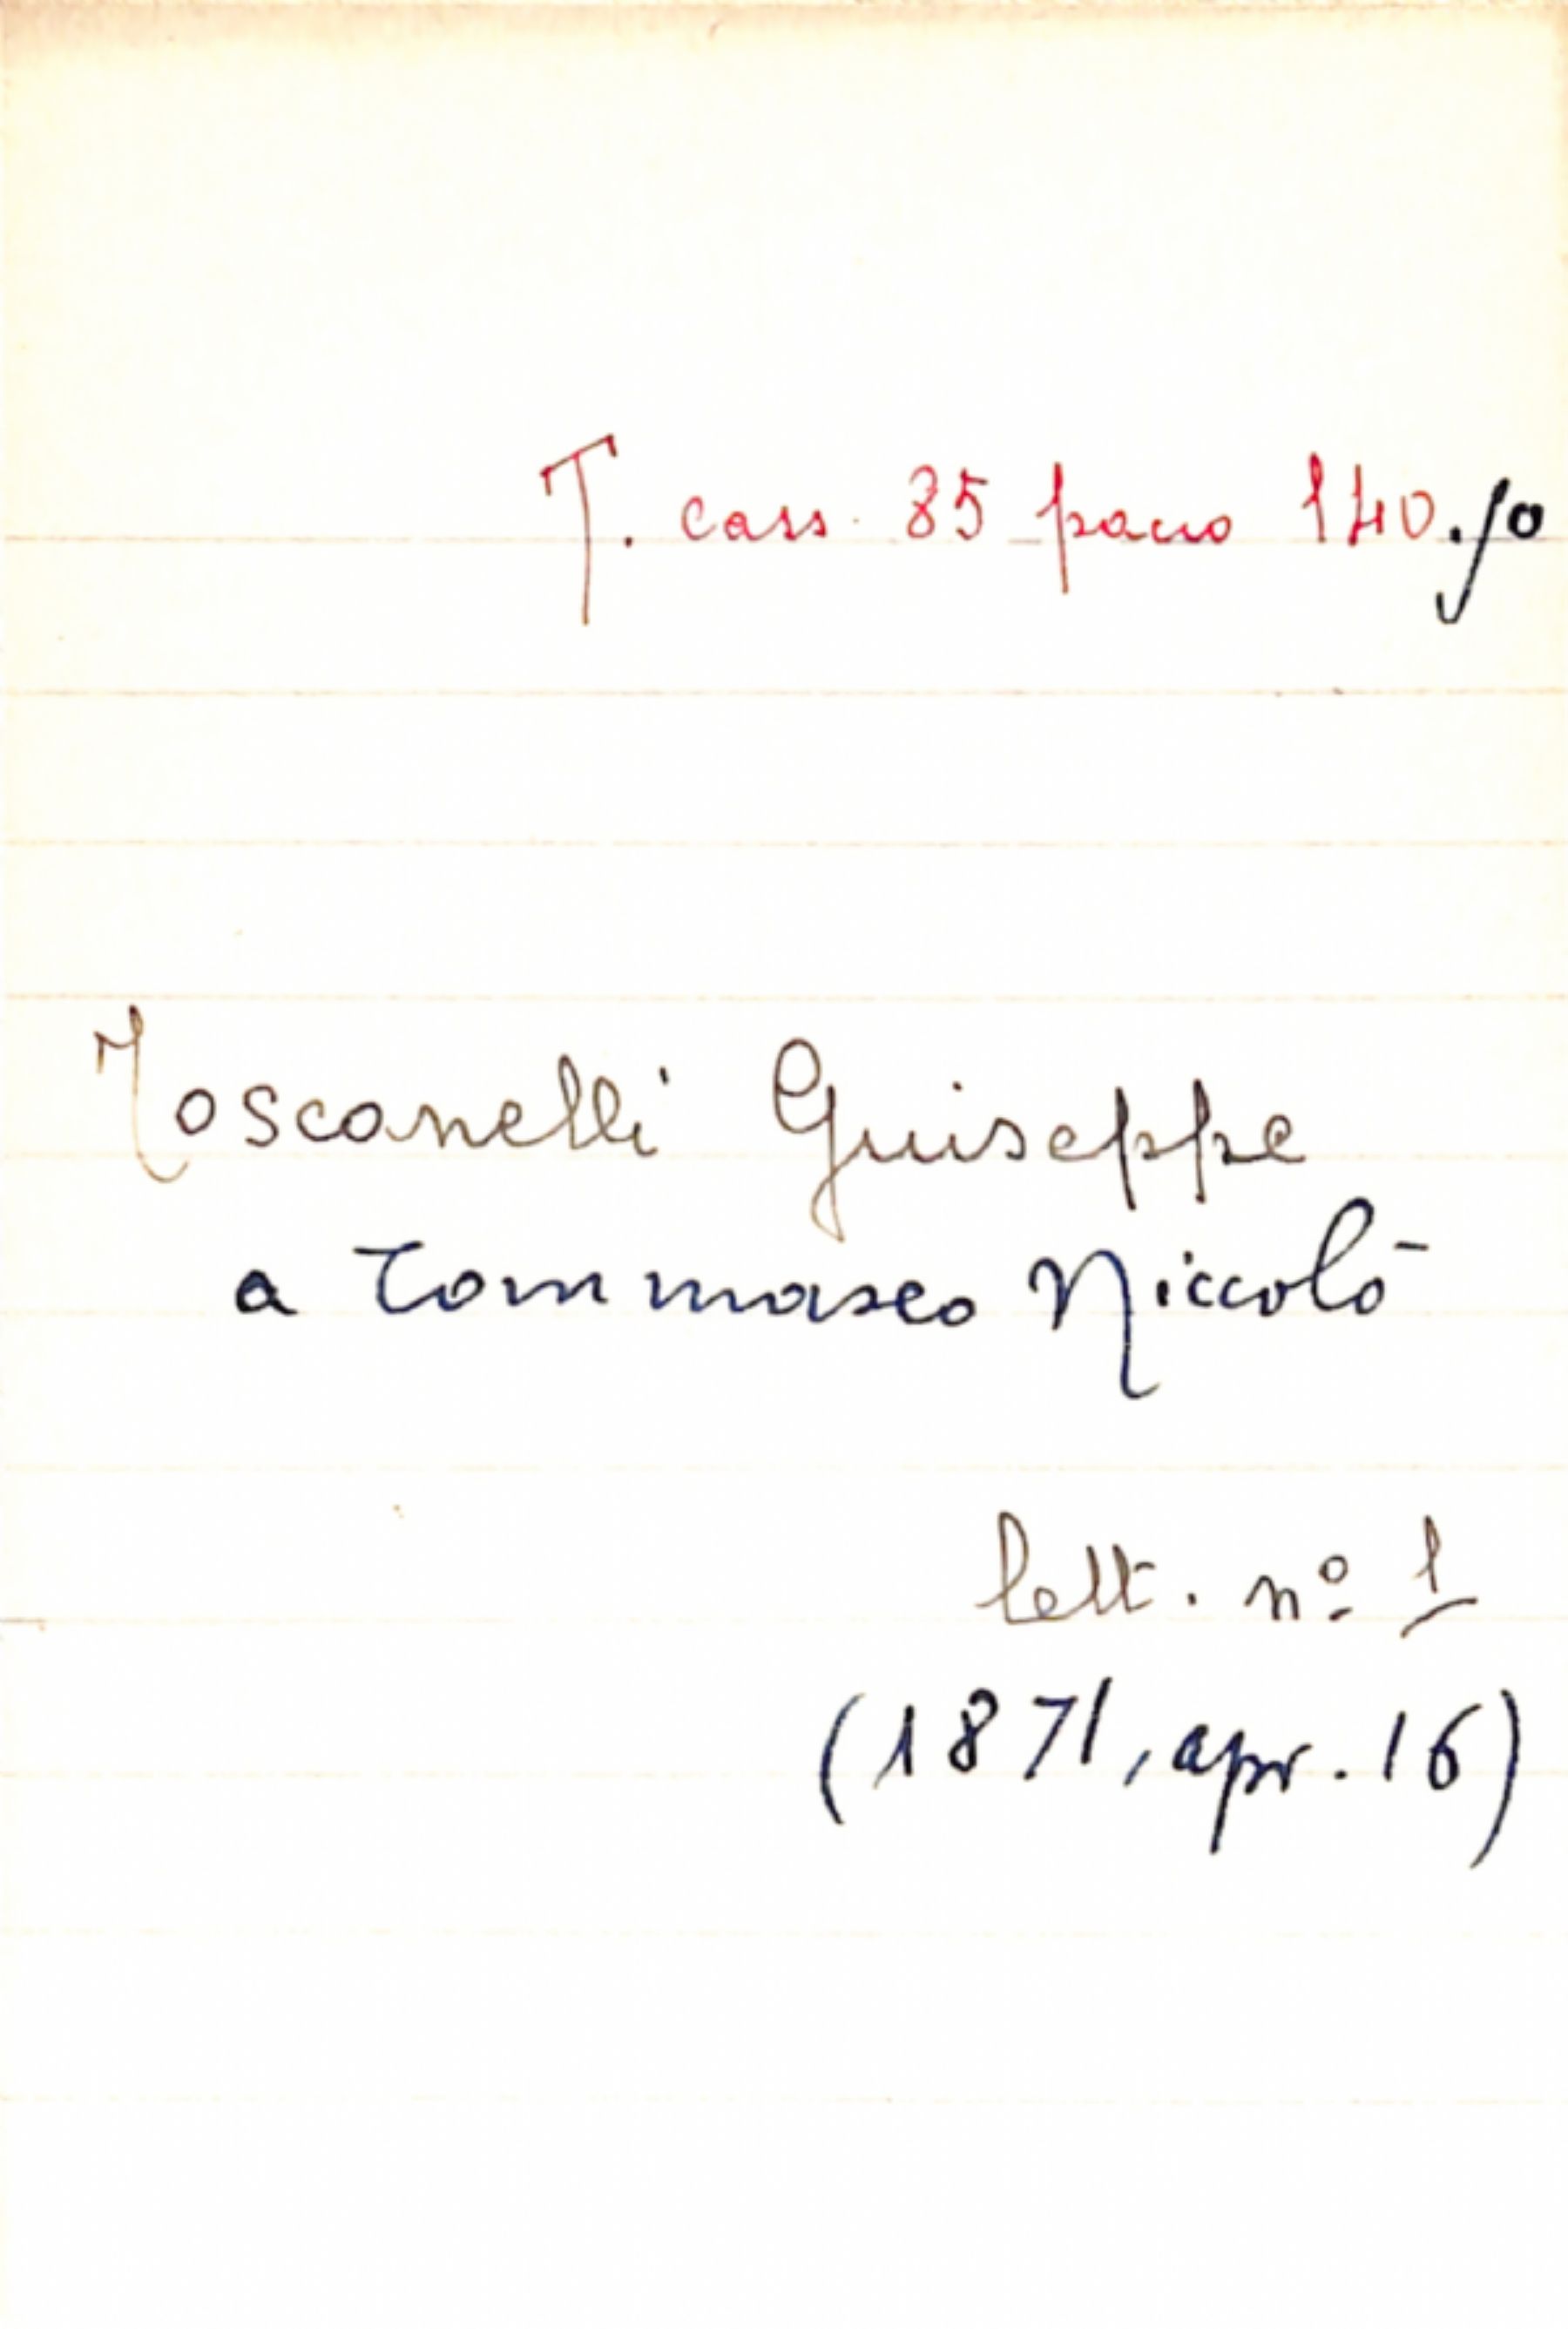 T. cass. 85 pacco 140.10
Toscanelli Giuseppe
a Tommaseo Niccolò
lett. nº 1
(1871, apr. 16)